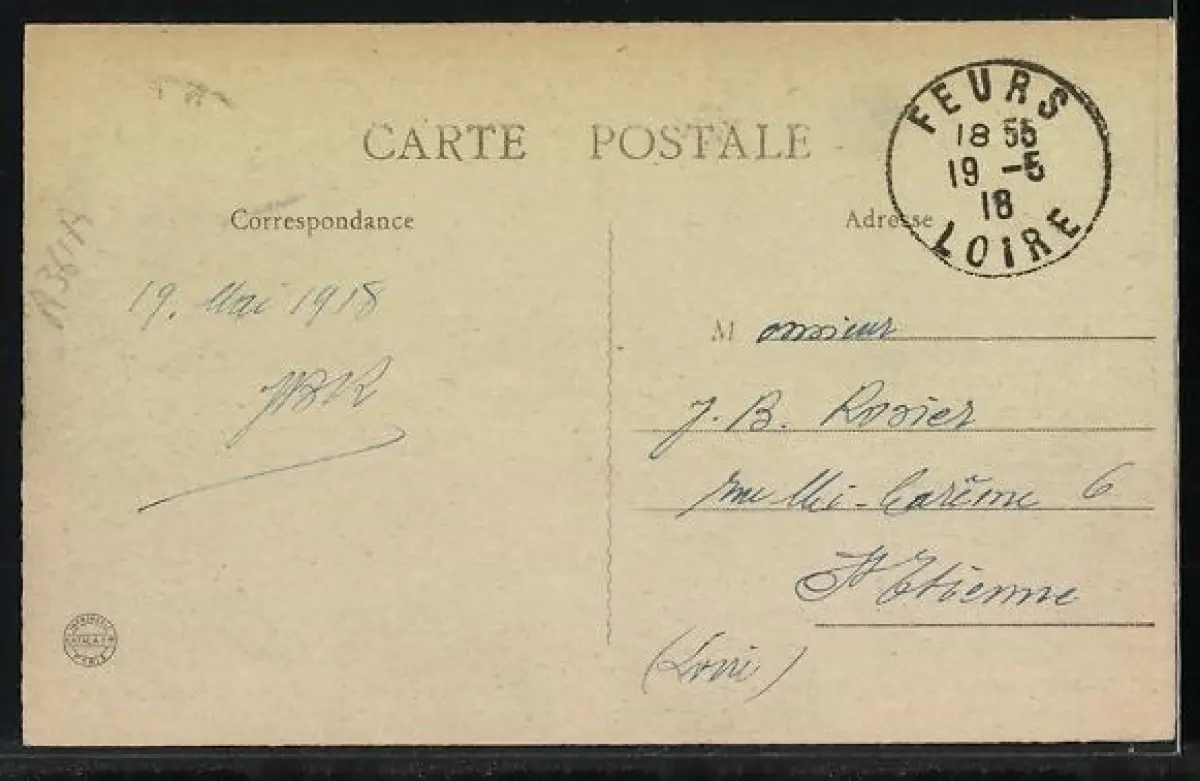 CARTE POSTALE
FEURS
18 55
19 -5
18
LOIRE
Correspondance
Adresse
A361A
19. Mai 1918
JBR
Monsieur
J. B. Rosier
rue Mi-Carême 6
St Etienne
(Loire)
PARIS